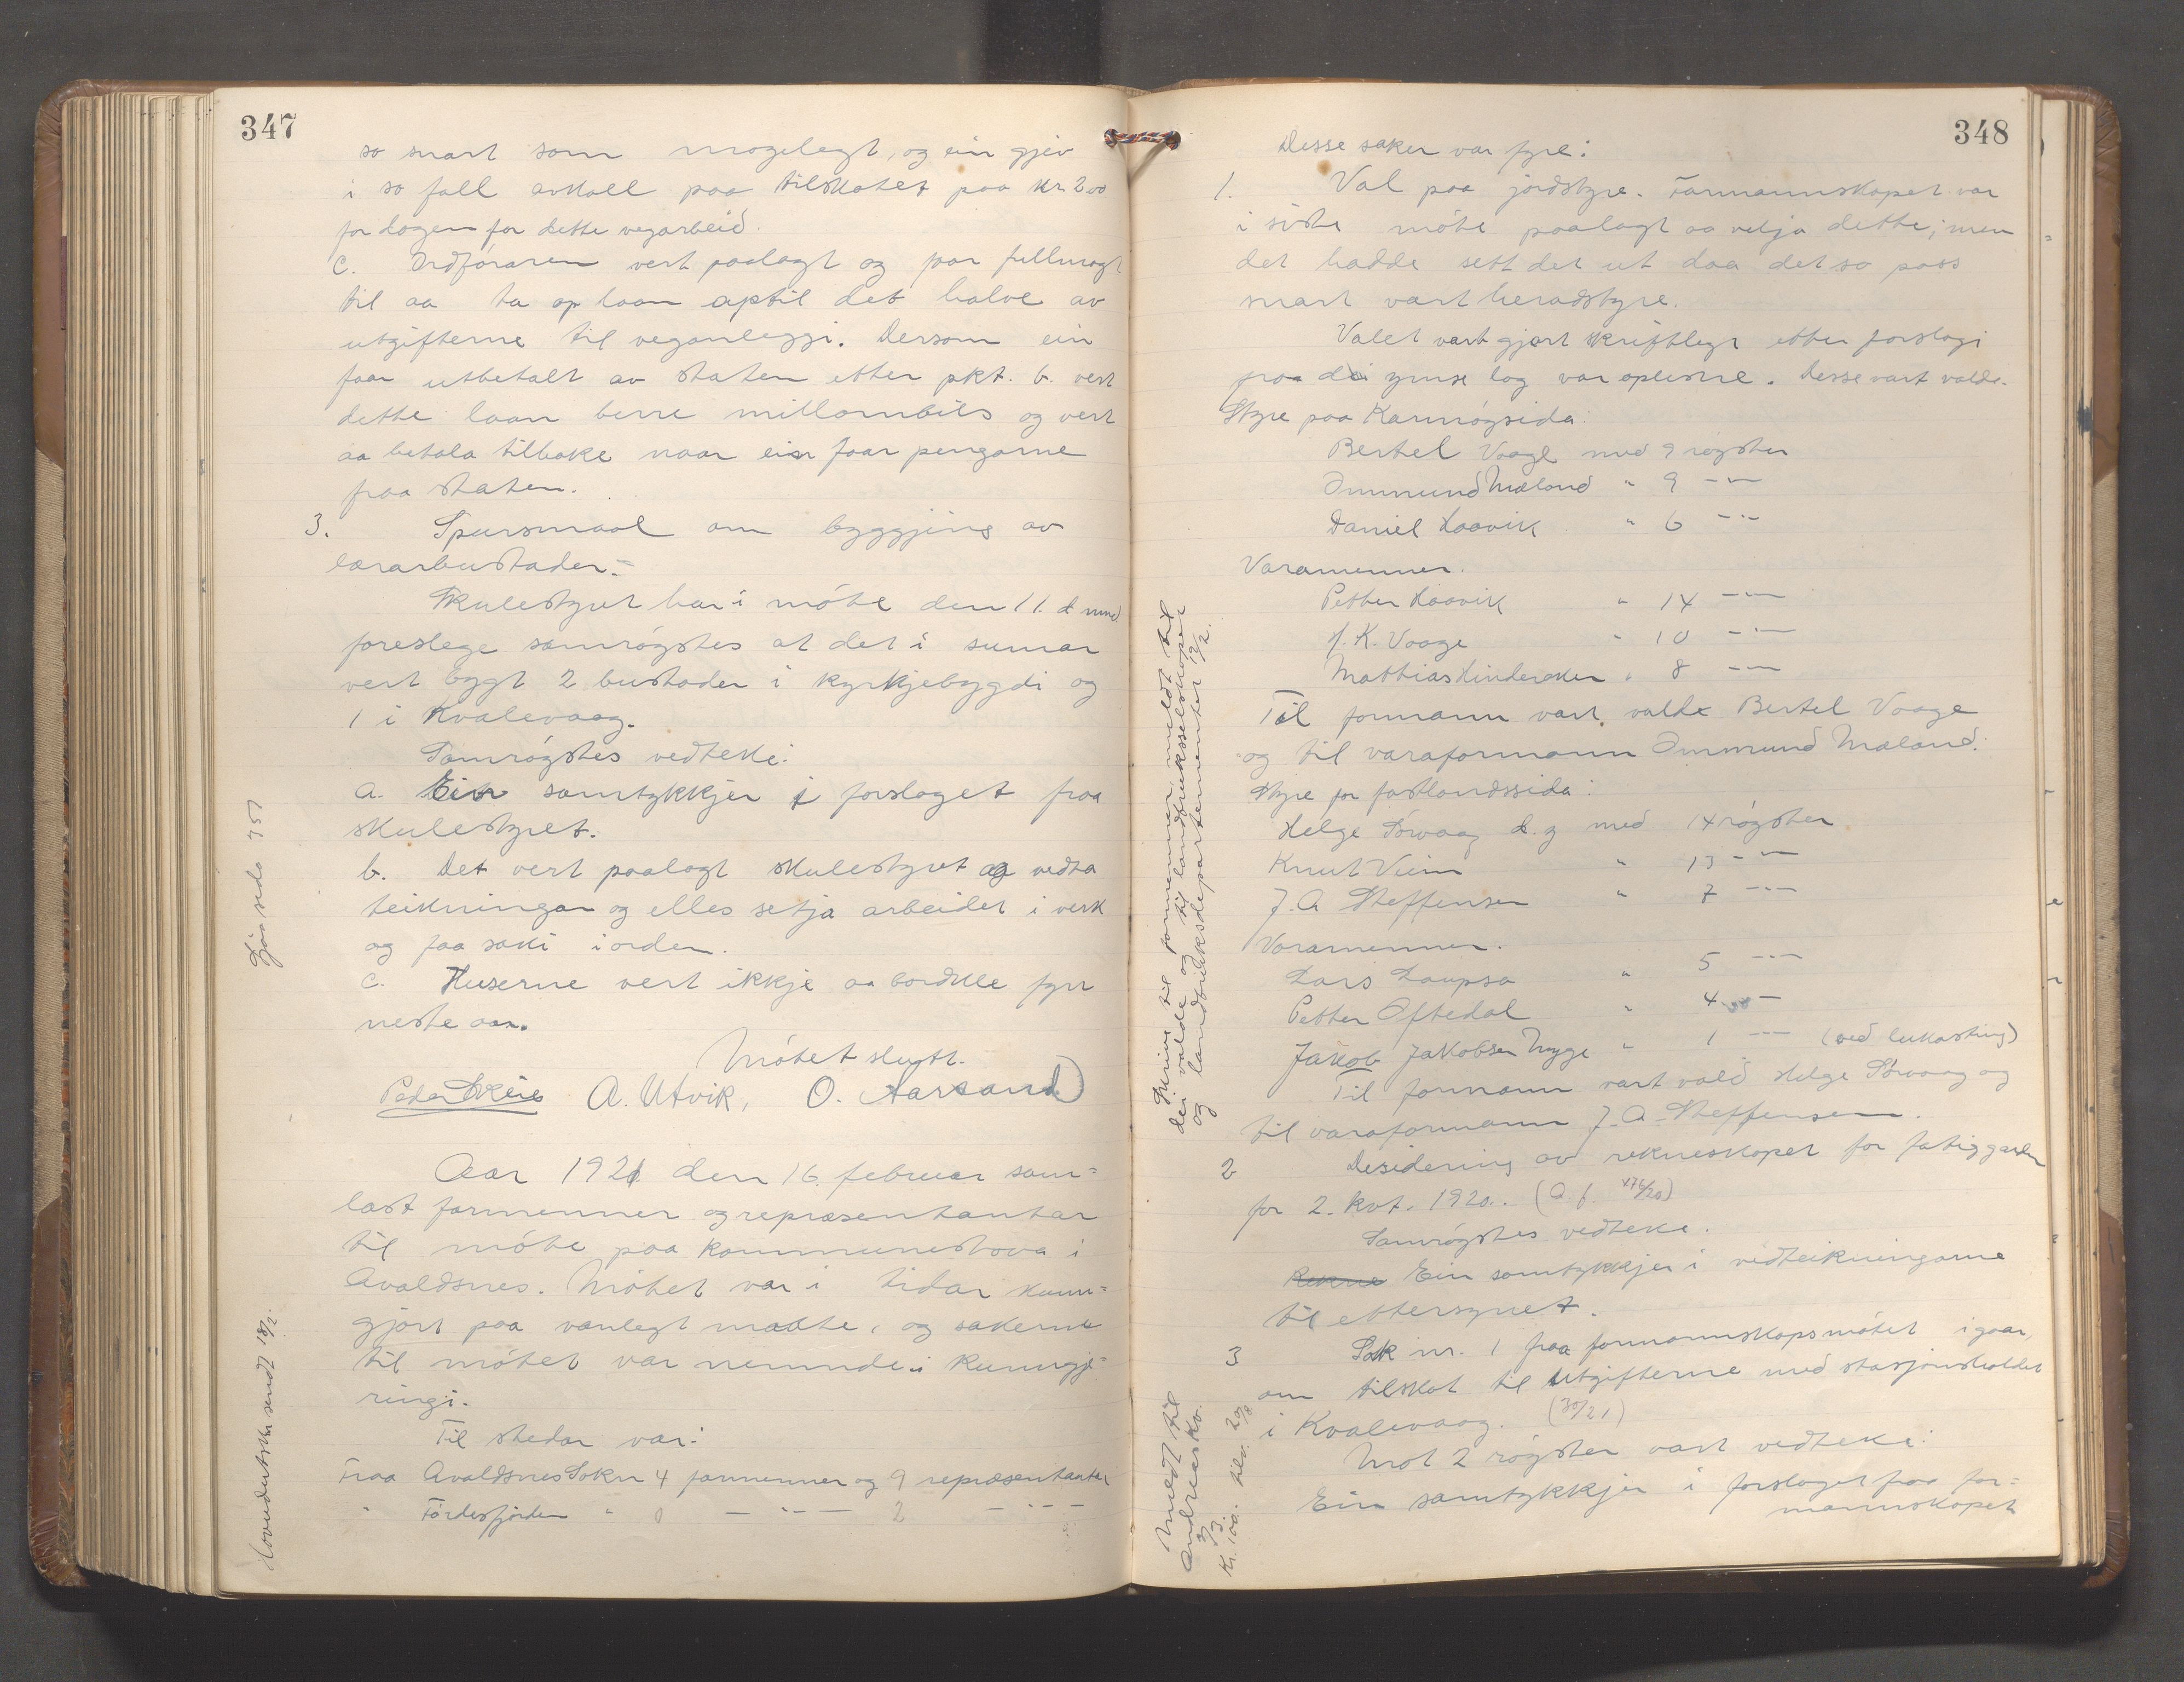 347
so snart som mogelegt, og ein gjev
i so fall avkall paa tilskotet paa kr. 2oo
for dagen for dette vegarbeid.
c. Ordføraren vert paalagt og faar fullmagt
til aa ta op laan optil det halve av
utgifterne til veganleggi. Dersom ein
faar utbetalt av staten etter pkt. b. vert
dette laan berre millombils og vert
aa betala tilbake naar ein faar pengarne
fraa staten.
3. Spursmaal om byggjing av
lærarbustader.=
Skulestyret har i møte den 11. d. mnd
foreslege samrøystes at det i sumar
vert bygt 2 bustader i kyrkjebygdi og
1 i Kvalevaag.
Samrøystes vedteke:
a. Ein samtykkjer i forslaget fraa
skulestyret.
b. Det vert paalagt skulestyret og vedta
teikningar og elles setja arbeidet i verk
og faa saki i orden.
c. Huserne vert ikkje aa bordkle fyrr
neste aar.
Møtet slutt.
Peder Skeie A. Utvik, O. Aarsand
Sjaa sida 351
Aar 1921 den 16. februar sam=
last formenner og representantar
til møte paa kommunestova i
Avaldsnes. Møtet var i tidar kunn=
gjort paa vanlegt maate, og sakerne
til møtet var nemnde i kunngje=
ringi.
Til stedar var:
Fraa Avaldsnes Sokn 4 formenner og 9 representanter
" Førdesfjorden " 0 — " — 2 — " —
Hovudutskr. sendt 18/2.
348
Desse saker var fyre:
1. Val paa jordstyre. Formannskapet var
i siste møte paalagt aa velja dette; men
det hadde sett det ut daa det so pass
snart vart heradstyre.
Valet vart gjort skriftlegt etter forslagi
fraa dei ymse lag var oplesne. Desse vart valde.
Styre paa Karmøysida:
Bertel Vaage med 9 røyster
Ommund Mæland " 9 — " —
Daniel Haavik " 6 — " —
Varamenner.
Petter Haavik " 14 — " —
J. K. Vaage " 10 — " —
Mattias Hinderaker " 8 — " —
Til formann vart valde Bertel Vaage
og til varaformann Ommund Mæland.
Styre for fastlandssida:
Helge Børvaag d. y med 14 røyster
Knut Viim " 13 — " —
J. A. Steffensen " 7 — " —
Varamenner.
Lars Laupsa " 5 — " —
Petter Oftedal " 4 — " —
Jakob Jakobsen Mygje " 1 — " — (ved lukasting)
Til formann vart vald Helge Børvaag og
til varaformann J. A. Steffensen.
2 Desidering av rekneskapet for fatiggarden
for 2. kvt. 1920. (a. f. 476/20)
Samrøystes vedteke.
Ein samtykkjer i vedteikningarne
til ettersynet.
3 Sak nr. 1 fraa formannskapsmøtet igaar,
om tilskot til utgifterne med stasjonsholdet
i Kvalevaag. (30/21)
Mot 2 røyster vart vedteke:
Ein samtykkjer i forslaget fraa for=
mannskapet
Skriv til formenner, meldt til
dei valde og til landbrukselskapet
og landbruksdepartementet 19/2.
Meldt til
Andreas Kv.
3/3.
Kr. 100. tilv. 20/8